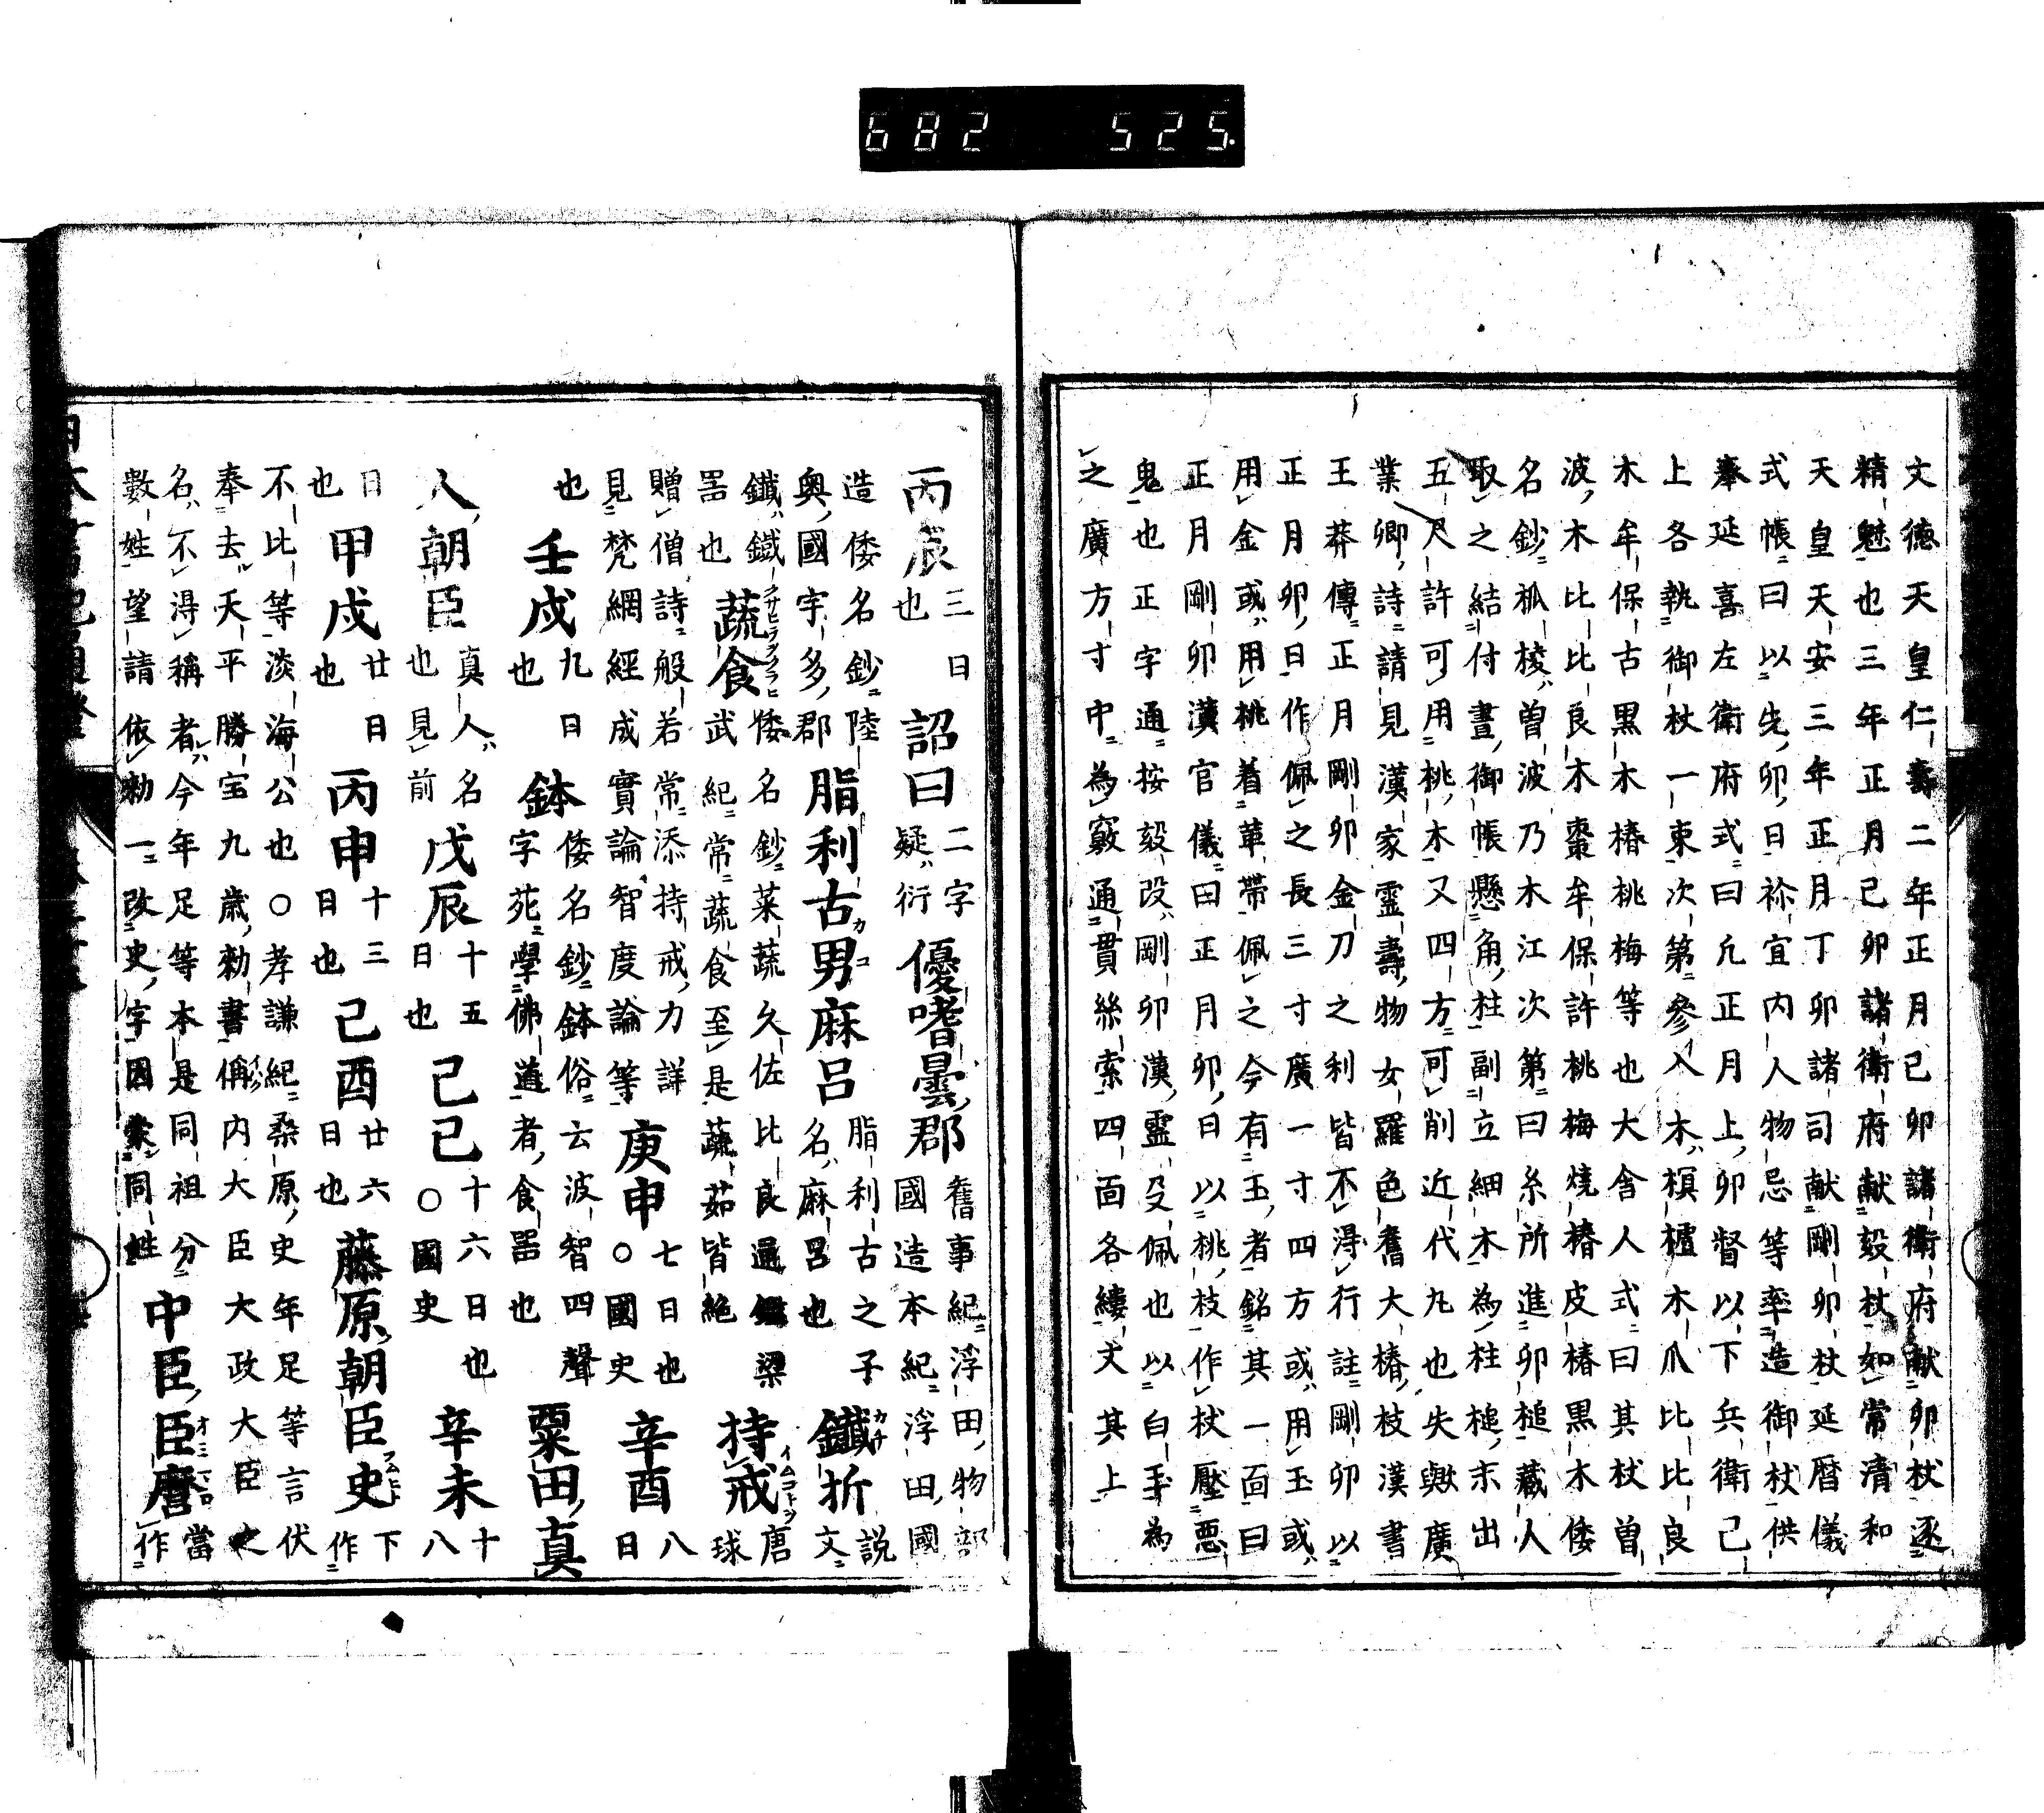 682 525
文德天皇仁壽二年正月己卯諸衛府献卯杖逐
精魅也三年正月己卯諸衛府献㲄杖如常清和
天皇天安三年正月丁卯諸司献剛卯杖延暦儀
式帳曰以先卯日祢宜内人物忌等率造御杖供
奉延喜左衛府式曰凡正月上卯督以下兵衛已
上各執御杖一束次第參入木椇櫨木爪比比良
木牟保古黒木椿桃梅等也大舍人式曰其杖曽
波木比比良木棗牟保許桃梅燒椿皮椿黒木倭
名鈔柧棱曽波乃木江次第曰糸所進卯槌藏人
取之結付晝御帳懸角柱副立細木為柱槌末出
五尺許可用桃木又四方可削近代九也失歟廣
業卿詩請見漢家靈壽物女羅色舊大椿枝漢書
王莽傳正月剛卯金刀之利皆不得行註剛卯以
正月卯日作佩之長三寸廣一寸四方或用玉或
用金或用桃着革帶佩之今有玉者銘其一面曰
正月剛卯漢官儀曰正月卯日以桃枝作杖壓惡
鬼也正字通按㲄改剛卯漢靈殳佩也以白玉為
之廣方寸中為竅通貫絲索四面各縷丈其上
丙辰三日也詔曰二字疑衍優嗜曇郡舊事紀浮田物部國造本紀浮田國
造倭名鈔陸奥國宇多郡脂利古男麻呂脂利古之子名麻呂也鐵折説文
鐵鐵器也蔬食倭名鈔菜蔬久佐比良通鑑梁武紀常蔬食至是蔬茹皆絶持戒唐球
贈僧詩般若常添持戒力詳見梵網經成實論智度論等庚申七日也○國史辛酉八日
也壬戌九日也鉢倭名鈔鉢俗云波智四聲字苑學佛道者食器也粟田真
人朝臣真人名也見前戊辰十五日也己巳十六日也○國史辛未十八
日也甲戌廿日也丙申十三日也己酉廿六日也藤原朝臣史下作
不比等淡海公也○孝謙紀桑原史年足等言伏
奉去天平勝宝九歳勅書偁内大臣大政大臣之
名不得稱者今年足等本是同祖分
數姓望請依勅一改史字因蒙同姓中臣臣麿當作